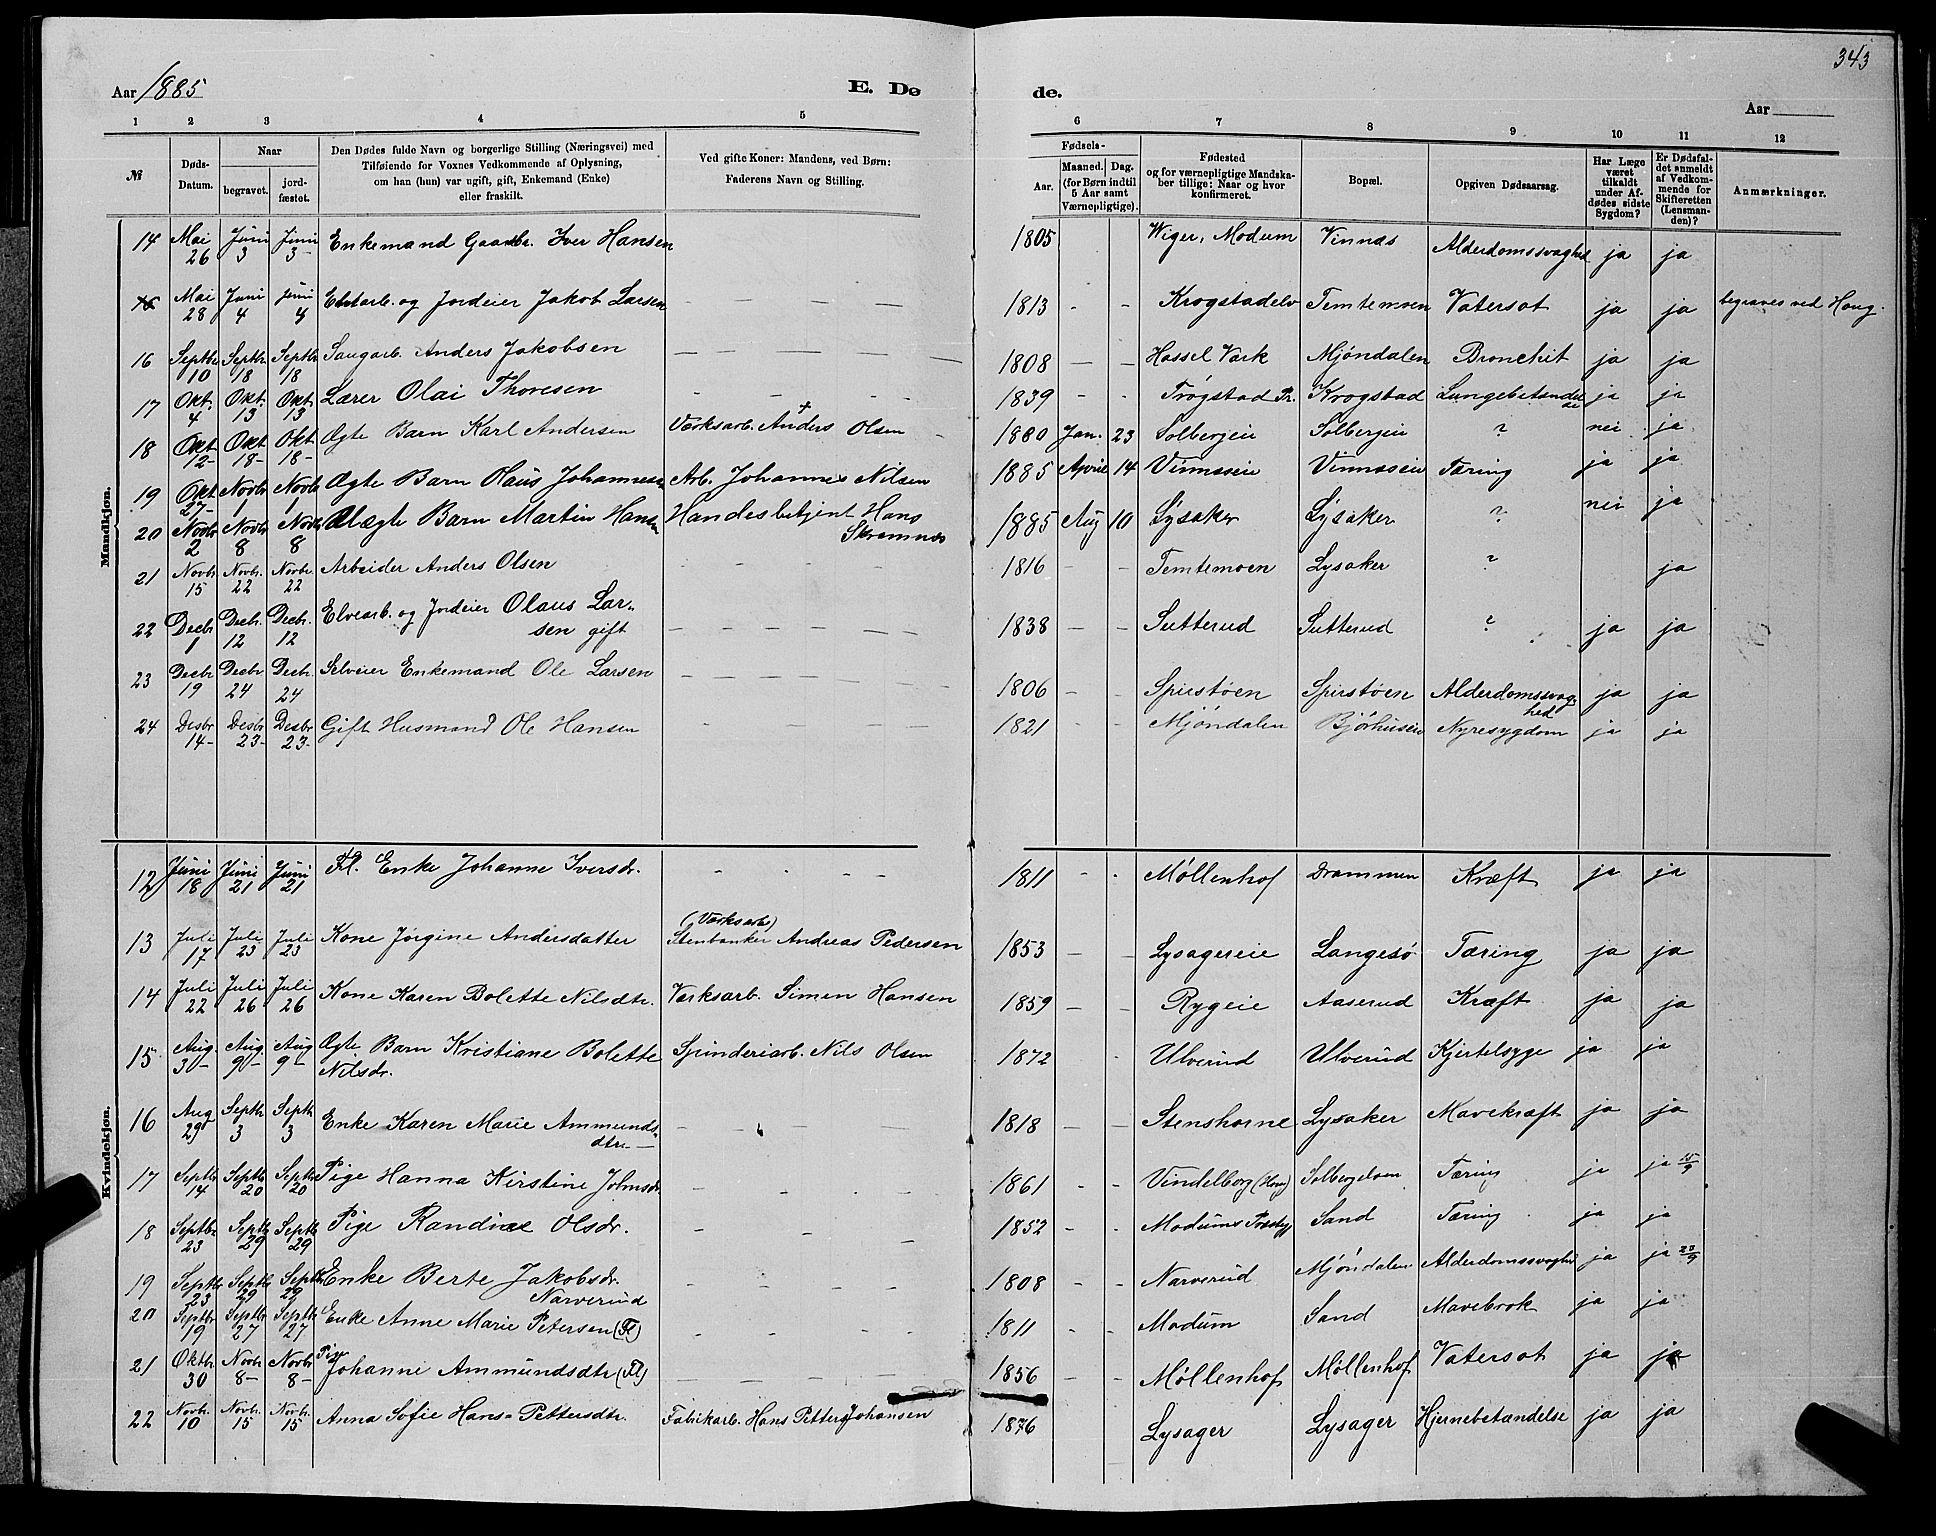 343
Aar 1885
E. Dø
de.
Aar
1 2 3 4 5 6 7 8 9 10 11 12
№
Døds-Datum.
Naar
begravet.
jordfæstet.
Den Dødes fulde Navn og borgerlige Stilling (Næringsvei) med
Tilføiende for Voxnes Vedkommende af Oplysning,
om han (hun) var ugift, gift, Enkemand (Enke)
eller fraskilt.
Ved gifte Koner: Mandens, ved Børn:
Faderens Navn og Stilling.
Fødsels-
Aar.
Maaned. Dag.
(for Børn indtil
5 Aar samt
Værnepligtige).
Fødested
og for værnepligtige Mandskaber tillige: Naar og hvor
konfirmeret.
Bopæl.
Opgiven Dødsaarsag.
Har Læge været tilkaldt under Afdødes sidste Sygdom?
Er Dødsfaldet anmeldt af Vedkommende for Skifteretten (Lensmanden)?
Anmærkninger.
Mandkjøn.
14 Mai 26 Juni 3 Juni 3 Enkemand Gaardbr. Iver Hansen 1805 Wiger, Modum Vinnæs Alderdomssvaghed ja ja
15 Mai 28 Juni 4 Juni 4 og Jordeier Jakob Larsen 1813 Krogstadelv Temtemoen Vatersot ja ja begraves ved Houg.
16 Septbr 10 Septbr 18 Septbr 18 Saugarb. Anders Jakobsen 1808 Hassel Værk Mjøndalen Bronchit ja ja
17 Okt. 4 Okt. 13 Okt 13 Lærer Olai Thoresen 1839 Trøgstad Pr. Krogstad Lungebetændelse ja ja
18 Okt 12 Okt 18 Okt 18 Ægte Barn Karl Andersen Værksarb. Anders + Olsen 1880 Jan. 23 Solbergeie Solbergeie ? nei ja
19 Okt 27 Novbr 1 Novbr 1 Ægte Barn Olaus Johannesen Arb. Johannes Nilsen 1885 April 14 Vinnæseie Vinnæseie Tæring ja ja
20 Novbr 2 Novbr 8 Novbr 8 Uægte Barn Martin Hansen Handesbetjent Hans Skremnæs 1885 Aug 10 Lysaker Lysaker ? nei ja
21 Novbr 15 Novbr. 22 Novbr. 22 Arbeider Anders Olsen 1816 Temtemoen Lysaker ? ja
22 Decbr 1 Decbr. 12 Decbr. 12 Elvearb. og Jordeier Olaus Larsen gift 1838 Sutterud Sutterud ? ja ja
23 Decbr 19 Decbr 24 Decbr. 24 Selveier Enkemand Ole Larsen 1806 Spirstøen Spirstøen Alderdomssvaghed ja ja
24 Desbr 14 Desbr 23 Desbr 23 Gift Husmand Ole Hansen 1821 Mjøndalen Bjørhuseie Nyresygdom ja ja
Kvindekjøn.
12 Juni 18 Juni 21 Juni 21 Fl. Enke Johanne Iversdr. 1811 Møllenhof Drammen Kræft ja ja
13 Juli 17 Juli 23 Juli 23 Kone Jørgine Andersdatter (Værksarb) Stenbanker Andreas Pedersen 1853 Lysagereie Langesø Tæring ja ja
14 Juli 22 Juli 26 Juli 26 Kone Karen Bolette Nilsdtr. Værksarb. Simen Hansen 1859 Rygeie Aaserud Kræft ja ja
15 Aug. 3 Aug. 9 Aug 9 Ægte Barn Kristiane Bolette Nilsdr. Spinderiarb. Nils Olsen 1872 Ulverud Ulverud Kjertelsyge ja ja
16 Aug 29 Septbr 3 Septbr 3 Enke Karen Marie Ammundsdtr 1818 Stenshorne Lysaker Mavekræft ja ja
17 Septbr 14 Septbr 20 Septbr 20 Pige Hanna Kirstine Johnsdr. 1861 Vindelborg (Houg) Solbergelven Tæring ja ja 15/9
18 Septbr 23 Septbr 29 Septbr 29 Pige Randine Olsdr. 1852 Modums Præstgj Sand Tæring ja ja
19 Septbr 23 Septbr 29 Septbr 29 Enke Berte Jakobsdr. Narverud 1808 Narverud Mjøndalen Alderdomssvaghed ja ja 23/9
20 Septbr 19 Septbr 27 Septbr 27 Enke Anne Marie Petersen (Fl) 1811 Modum Sand Mavebrok ja ja
21 Oktbr 30 Novbr 8 Novbr 8 Pige Johanne Ammundsdtr (Fl) 1856 Møllenhof Møllenhof Vatersot ja ja
22 Novbr. 10 Novbr. 15 Novbr. 15 Anna Sofie Hans-Pettersdtr. Fabrikarb. Hans Petter Johansen 1876 Lysager Lysager Hjernebetændelse ja ja